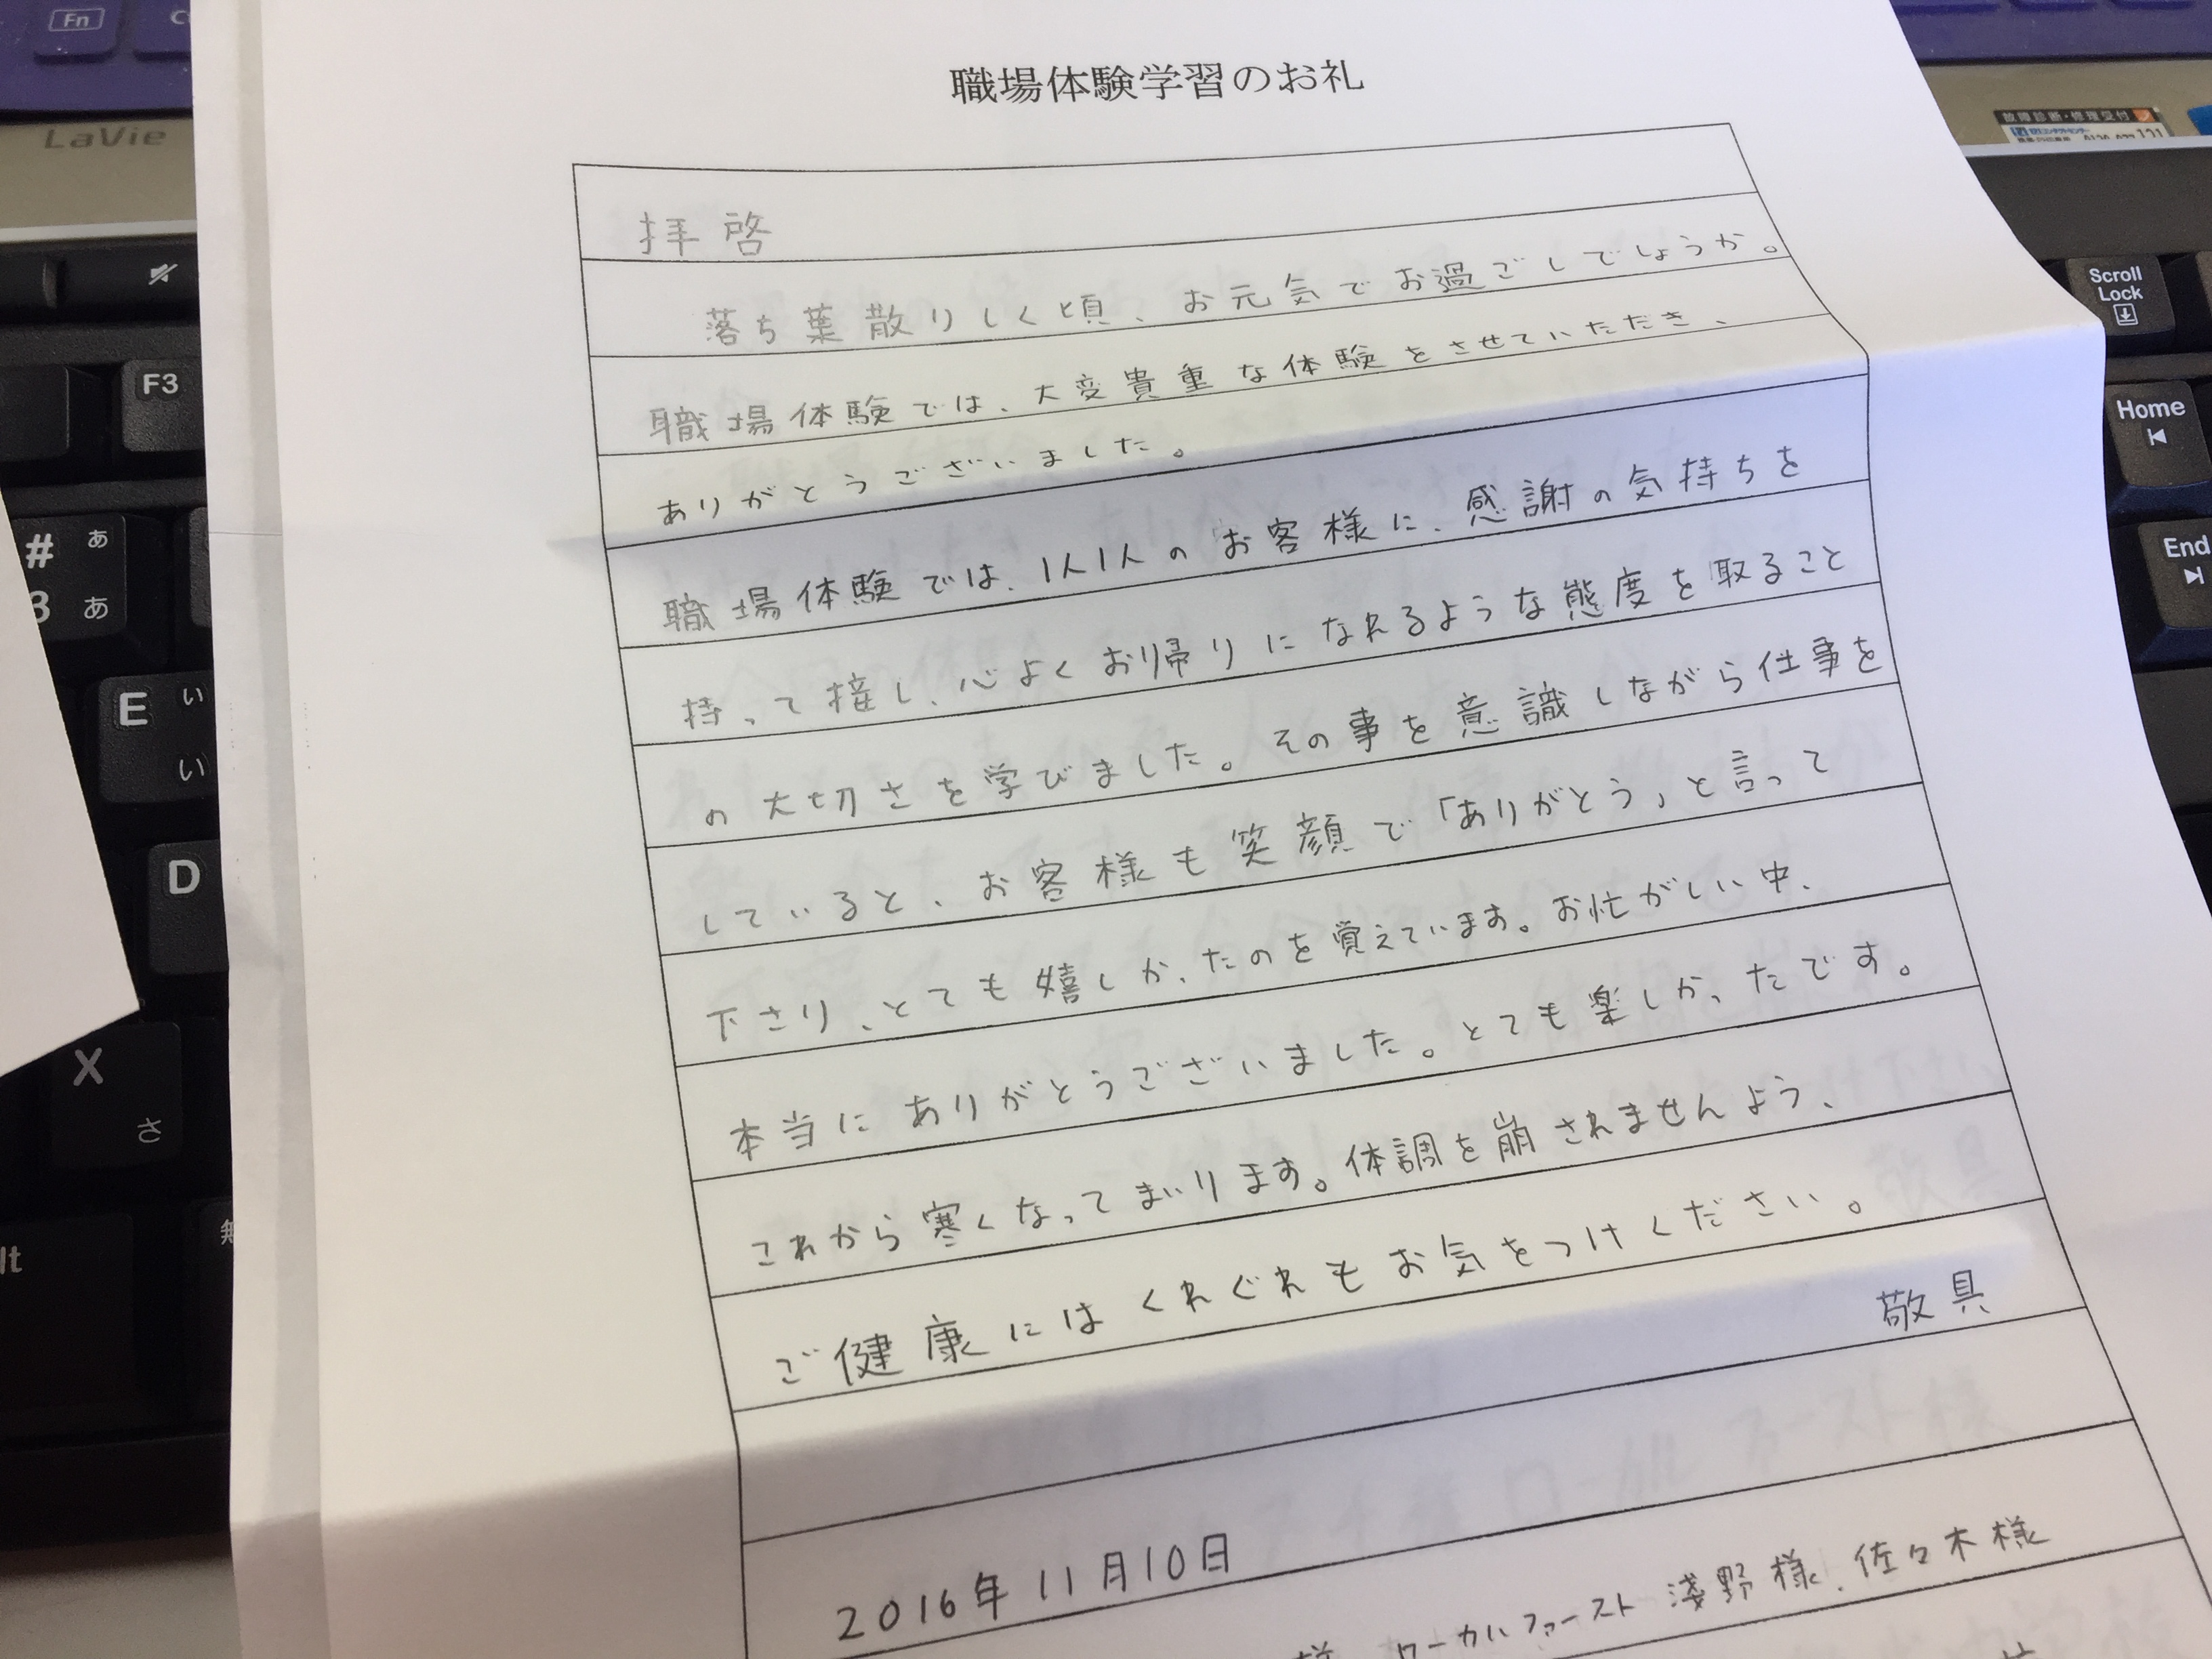 職場体験学習のお礼
拝啓
落ち葉散りしく頃、お元気でお過ごしでしょうか。
職場体験では、大変貴重な体験をさせていただき、
ありがとうございました。
職場体験では、1人1人のお客様に、感謝の気持ちを
持って接し、心よくお帰りになれるような態度を取ること
の大切さを学びました。その事を意識しながら仕事を
していると、お客様も笑顔で「ありがとう」と言って
下さり、とても嬉しかったのを覚えています。お忙がしい中、
本当にありがとうございました。とても楽しかったです。
これから寒くなってまいります。体調を崩されませんよう、
ご健康にはくれぐれもお気をつけください。
敬具
2016年11月10日
ローカルファースト 淺野様、佐々木様
Fn
LaVie
F3
# ぁ
3 あ
E ぃ
い
D
X
さ
lt
無
故障診断・修理受付
Scroll
Lock
Home
End